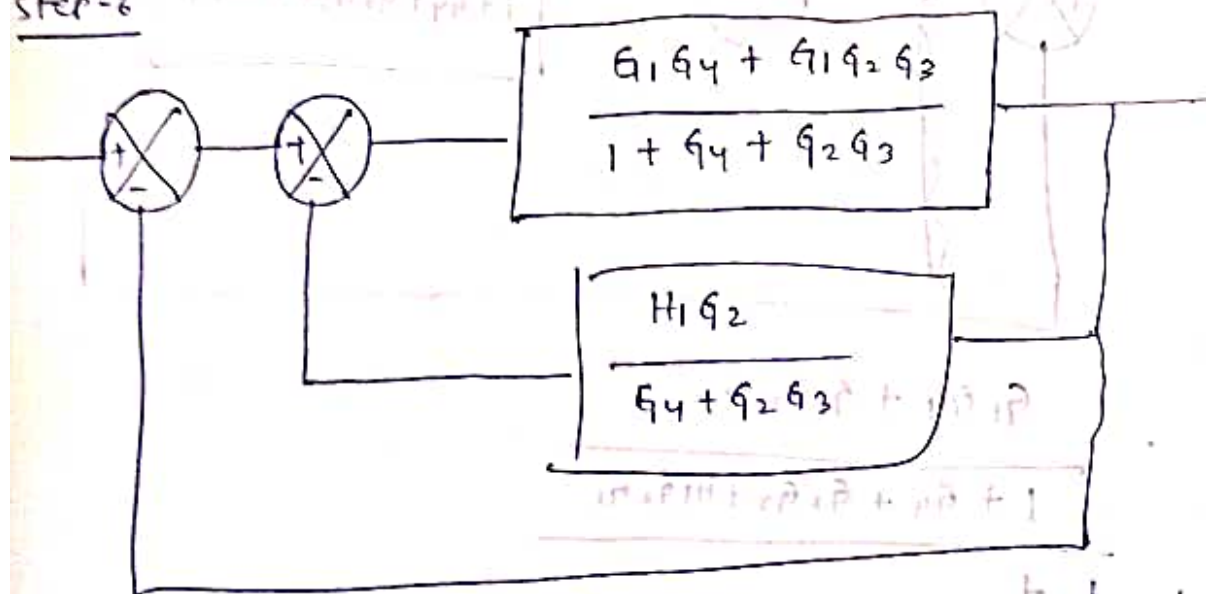 Step-6
G1G4 + G1G2G3
1 + G4 + G2G3
+
-
+
-
H1G2
G4 + G2G3